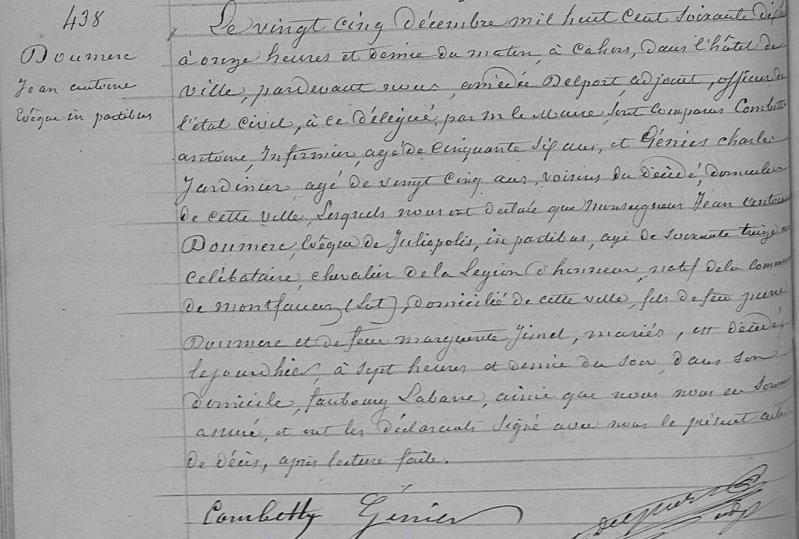 438
Doumerc
Jean antoine
Evêque in partibus
Le vingt cinq décembre mil huit cent soixante dix
à onze heures et demie du matin, à Cahors, dans l'hôtel de
ville, pardevant nous, amédée Delport, adjoint, officier de
l'état civil, à ce délégué, par m. le Maire, sont comparus Combette
antoine, Infirmier, agé de Cinquante Six ans, et Génies charles
Jardinier, agé de vingt Cinq ans, voisins du décédé, domiciliés
de cette ville, Lesquels nous ont déclaré que Monseigneur Jean antoine
Doumerc, Evêque de Juliopolis, in partibus, agé de soixante treize ans
celibataire, chevalier de la Legion d'honneur, natif de la commune
de montfaucon (Lot), domicilié de cette ville, fils de feu pierre
Doumerc et de feue marguerite, mariés, est décédé
le jourd'hier, à sept heures et demie du soir, dans son
domicile, faubourg Labarre, ainsi que nous nous en sommes
assuré, et ont les déclarants signé avec nous le présent acte
de décès, après lecture faite.
Génies Delport
adj